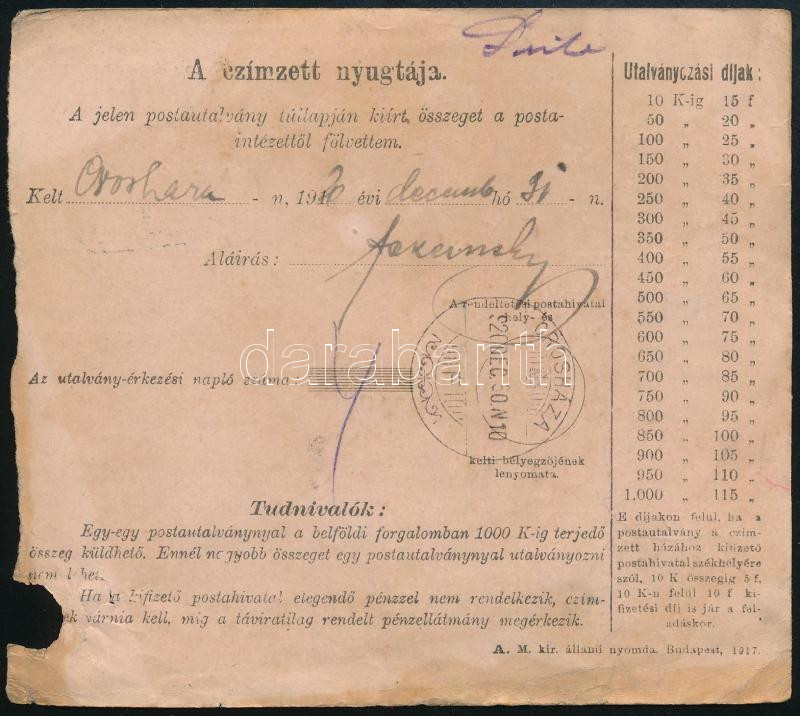 A czímzett nyugtája.
A jelen postautalvány túllapján kiírt összeget a posta-
intézettől fölvettem.
Kelt Oroshaza - n, 1920 évi decemb hó 31 - n.
Aláírás:
A rendeltetési postahivatal
hely- és
OROSHÁZA
920 DEC. 30. N 10
Az utalvány-érkezési napló száma
kelti bélyegzőjének
lenyomata.
darabanth
Tudnivalók:
Egy-egy postautalványnyal a belföldi forgalomban 1000 K-ig terjedő
összeg küldhető. Ennél nagyobb összeget egy postautalványnyal utalványozni
nem lehet.
Ha a kifizető postahivatal elegendő pénzzel nem rendelkezik, czím-
várnia kell, míg a táviratilag rendelt pénzellátmány megérkezik.
Utalványozási díjak:
10 K-ig 15 f
50 „ 20 „
100 „ 25 „
150 „ 30 „
200 „ 35 „
250 „ 40 „
300 „ 45 „
350 „ 50 „
400 „ 55 „
450 „ 60 „
500 „ 65 „
550 „ 70 „
600 „ 75 „
650 „ 80 „
700 „ 85 „
750 „ 90 „
800 „ 95 „
850 „ 100 „
900 „ 105 „
950 „ 110 „
1.000 „ 115 „
E díjakon felül, ha a
postautalvány a czím-
zett házához kifizető
postahivatal székhelyére
szól, 10 K összegig 5 f,
10 K-n felül 10 f ki-
fizetési díj is jár a fel-
adáskor.
A. M. kir. állami nyomda. Budapest, 1917.